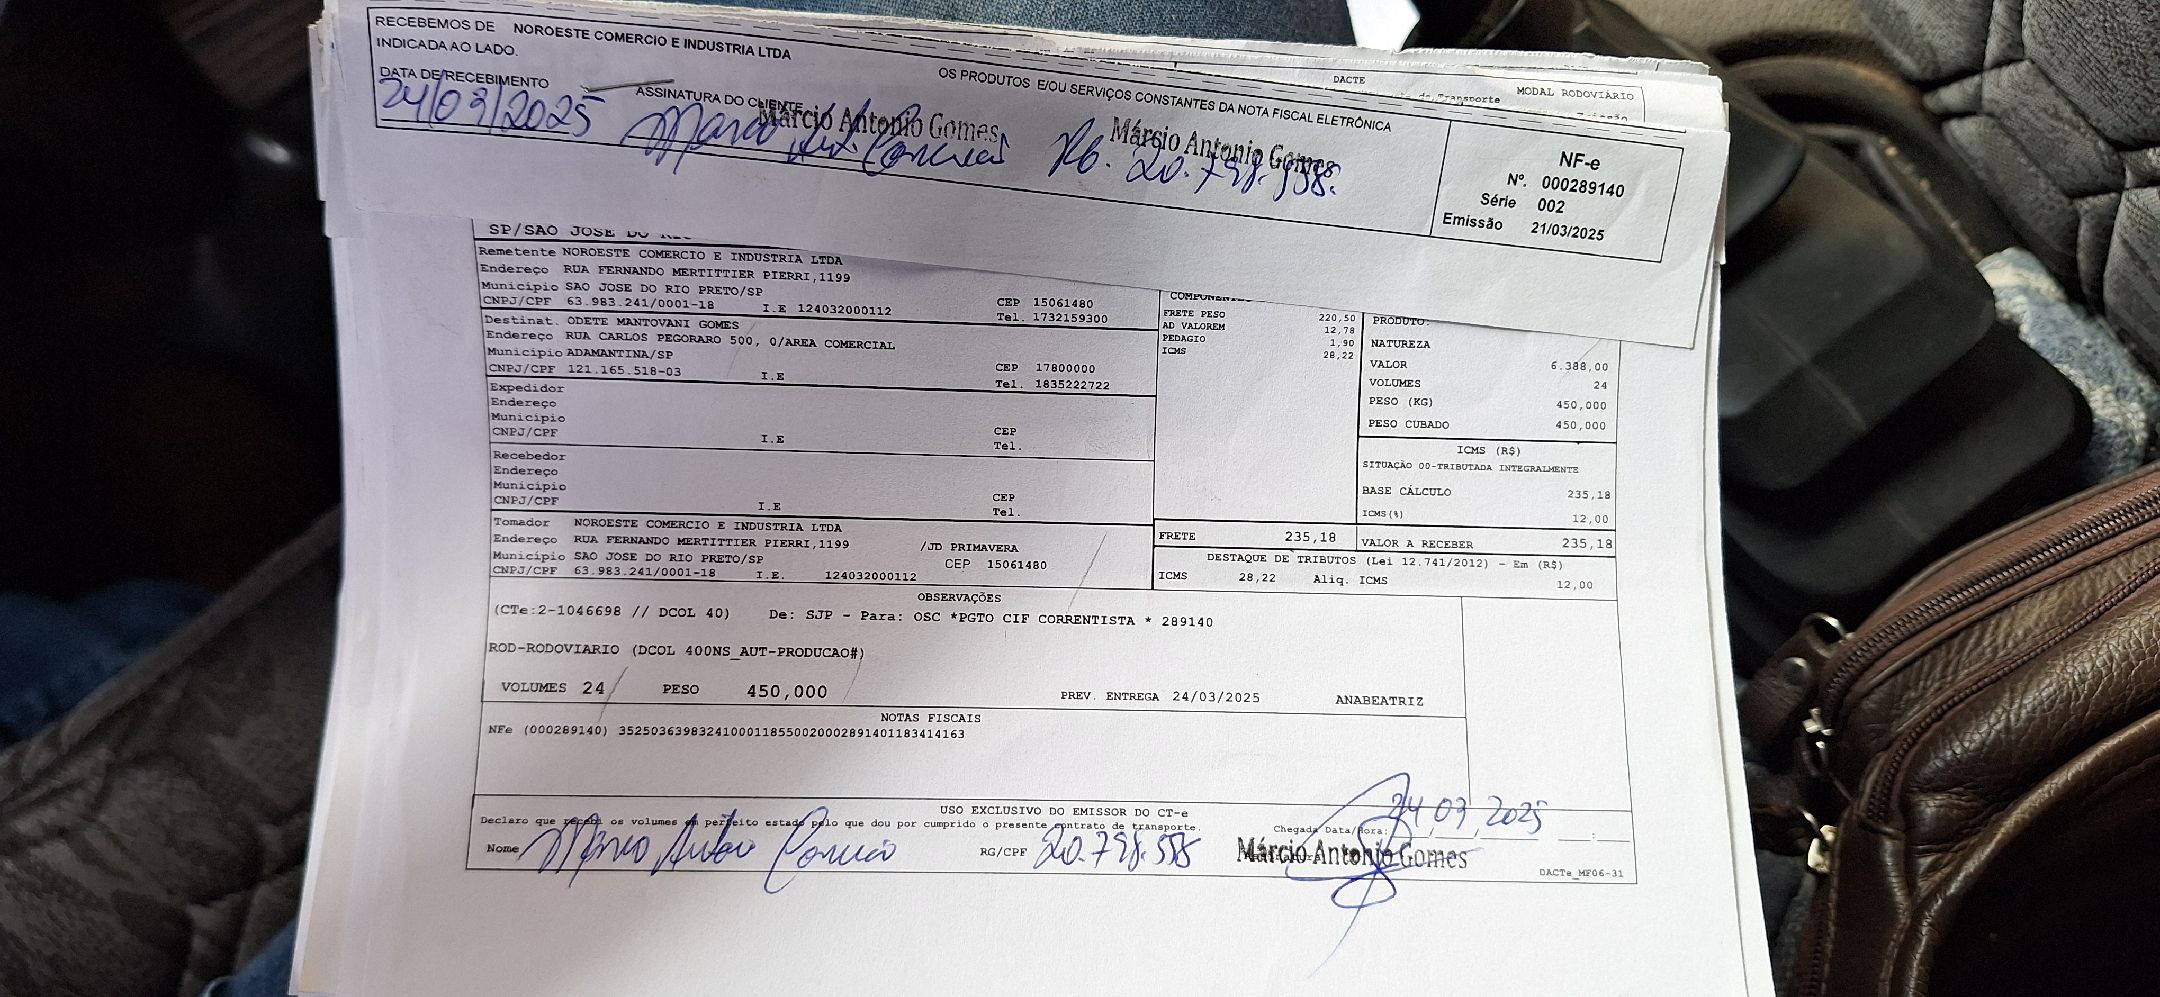 RECEBEMOS DE NOROESTE COMERCIO E INDUSTRIA LTDA OS PRODUTOS E/OU SERVIÇOS CONSTANTES DA NOTA FISCAL ELETRÔNICA
INDICADA AO LADO.
DATA DE RECEBIMENTO ASSINATURA DO CLIENTE
24/03/2025
Márcio Antonio Gomes Márcio Antonio Gomes
NF-e
Nº. 000289140
Série 002
Emissão 21/03/2025
DACTE
MODAL RODOVIÁRIO
SP/SAO JOSE DO
Remetente NOROESTE COMERCIO E INDUSTRIA LTDA
Endereço RUA FERNANDO MERTITTIER PIERRI,1199
Município SAO JOSE DO RIO PRETO/SP CEP 15061480
CNPJ/CPF 63.983.241/0001-18 I.E 124032000112 Tel. 1732159300
Destinat. ODETE MANTOVANI GOMES
Endereço RUA CARLOS PEGORARO 500, 0/AREA COMERCIAL
Município ADAMANTINA/SP CEP 17800000
CNPJ/CPF 121.165.518-03 I.E Tel. 1835222722
Expedidor
Endereço
Município CEP
CNPJ/CPF I.E Tel.
Recebedor
Endereço
Município CEP
CNPJ/CPF I.E Tel.
Tomador NOROESTE COMERCIO E INDUSTRIA LTDA
Endereço RUA FERNANDO MERTITTIER PIERRI,1199 /JD PRIMAVERA
Município SAO JOSE DO RIO PRETO/SP CEP 15061480
CNPJ/CPF 63.983.241/0001-18 I.E. 124032000112
FRETE PESO 220,50
AD VALOREM 12,78
PEDAGIO 1,90
ICMS 28,22
PRODUTO:
NATUREZA
VALOR 6.388,00
VOLUMES 24
PESO (KG) 450,000
PESO CUBADO 450,000
ICMS (R$)
SITUAÇÃO 00-TRIBUTADA INTEGRALMENTE
BASE CÁLCULO 235,18
ICMS(%) 12,00
FRETE 235,18 VALOR A RECEBER 235,18
DESTAQUE DE TRIBUTOS (Lei 12.741/2012) - Em (R$)
ICMS 28,22 Aliq. ICMS 12,00
OBSERVAÇÕES
(CTe:2-1046698 // DCOL 40) De: SJP - Para: OSC *PGTO CIF CORRENTISTA * 289140
ROD-RODOVIARIO (DCOL 400NS_AUT-PRODUCAO#)
VOLUMES 24 PESO 450,000 PREV. ENTREGA 24/03/2025 ANABEATRIZ
NOTAS FISCAIS
NFe (000289140) 35250363983241000118550020002891401183414163
USO EXCLUSIVO DO EMISSOR DO CT-e
Declaro que recebi os volumes em perfeito estado pelo que dou por cumprido o presente contrato de transporte.
Chegada Data/Hora: 24 03 2025
Nome RG/CPF
Márcio Antonio Gomes
DACTe_MF06-31